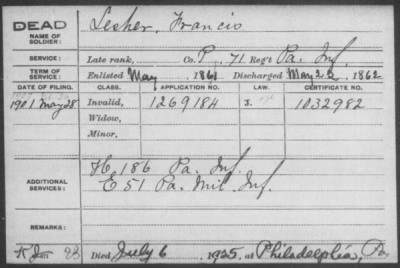 DEAD
NAME OF SOLDIER: Lesher, Francis
SERVICE: Late rank, Co. P, 71 Reg't Pa. Inf.
TERM OF SERVICE: Enlisted May 1861 Discharged May 22, 1862
DATE OF FILING. CLASS. APPLICATION NO. LAW. CERTIFICATE NO.
1901 May 28 Invalid, 1269184 1032982
Widow,
Minor,
ADDITIONAL SERVICES: H, 186 Pa. Inf.
E 51 Pa. Mil. Inf.
REMARKS:
Died July 6, 1925, at Philadelphia, Pa